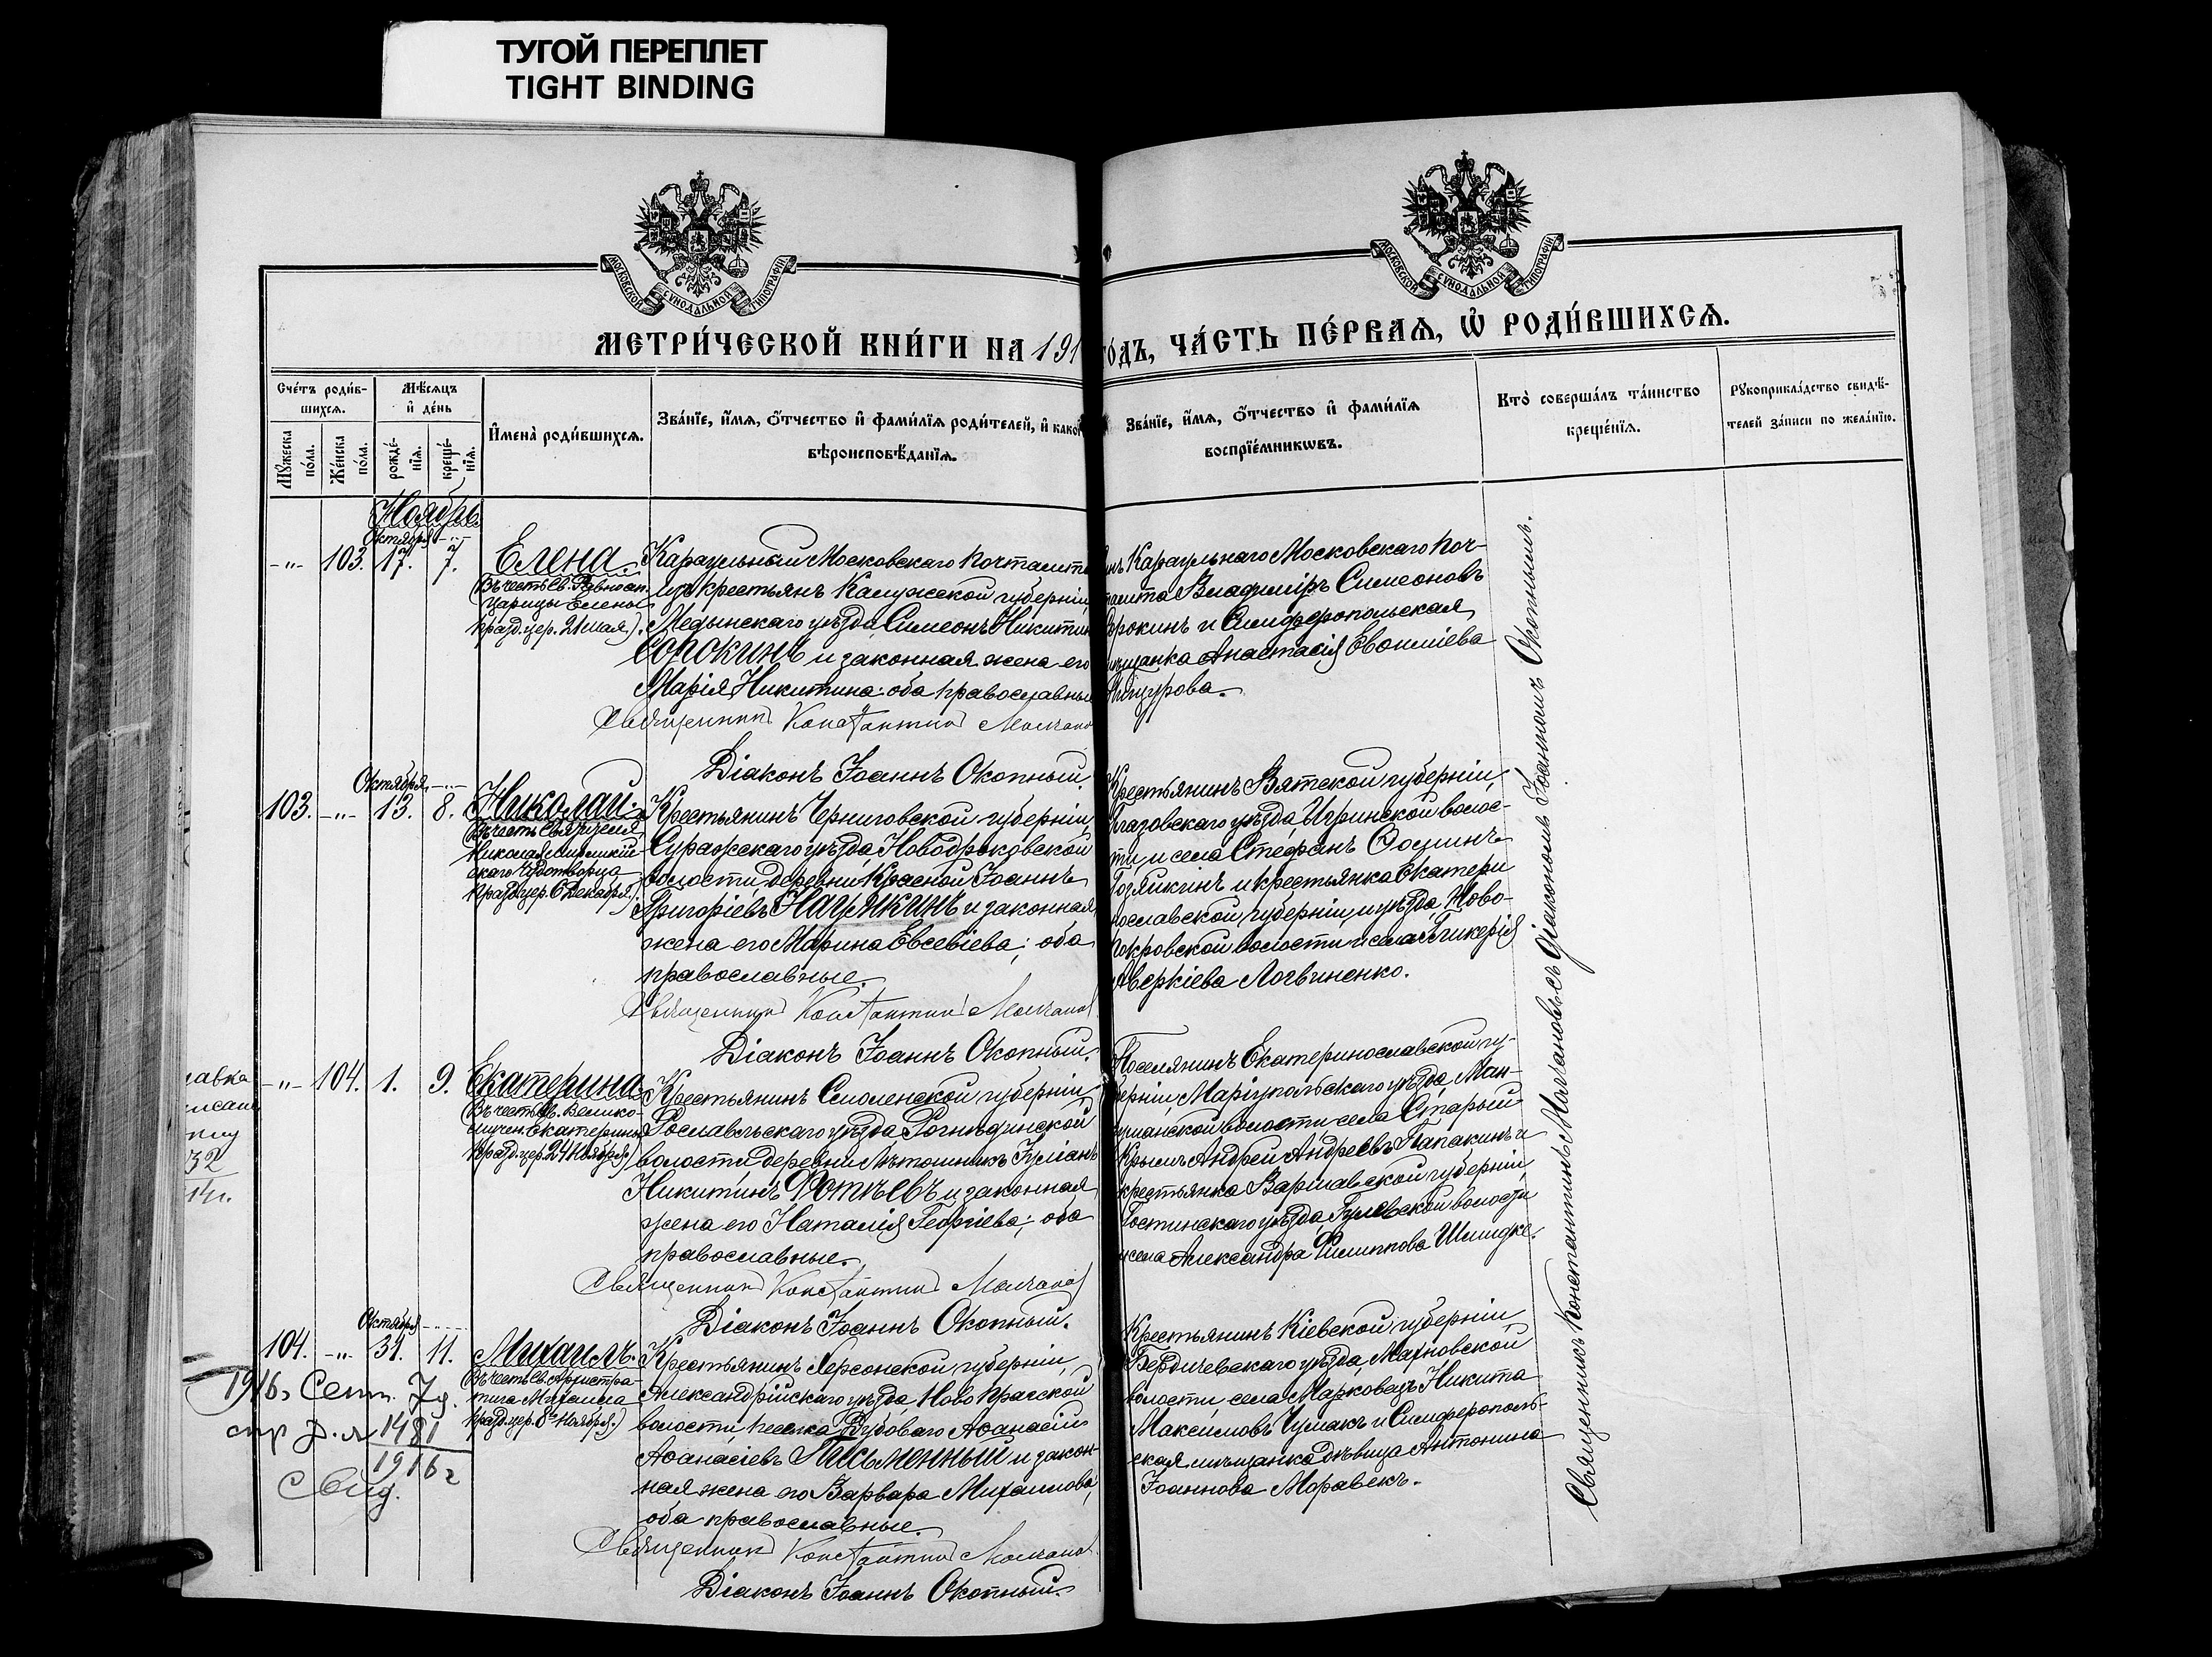 ТУГОЙ ПЕРЕПЛЕТ
TIGHT BINDING
МОСКОВСКОЙ СѴНОДАЛЬНОЙ ТИПОГРАФІИ
МОСКОВСКОЙ СѴНОДАЛЬНОЙ ТИПОГРАФІИ
МЕТРИ́ЧЕСКОЙ КНИ́ГИ НА 191
ГО́ДЪ, ЧА́СТЬ ПЕ́РВАѦ, Ѽ РОДИ́ВШИХСѦ.
Сче́тъ роди́в-
шихсѧ.
Мѣ́сяцъ
и҆ де́нь
Мꙋ́жеска
по́ла.
Же́нска
по́ла.
рожде́-
нїѧ.
креще́-
нїѧ.
И҆мена̀ роди́вшихсѧ.
Зва́нїе, и҆́мѧ, ѻ҆́тчество и҆ фами́лїѧ роди́телей, и҆ како
вѣроисповѣ́данїѧ.
Зва́нїе, и҆́мѧ, ѻ҆́тчество и҆ фами́лїѧ
воспрїе́мникѡвъ.
Кто̀ соверша́лъ та́инство
креще́нїѧ.
Рꙋкоприкла́дство свидѣ́-
телей за́писи по жела́нїю.
Ноябрь
Октября
-"- 103. 17. 7. Елена.
Въ честь Св. Равноап.
Царицы Елены
празд. цер. 21 мая.).
Караульный Московскаго почтамта
изъ крестьянъ Калужской губерніи,
Медынскаго уѣзда, Симеонъ Никитин
Сорокинъ и законная жена его
Марія Никитина: оба православны
Священникъ Константинъ Молчанов
Діаконъ Іоаннъ Окопный.
нъ Караульнаго Московскаго поч-
тамта Владиміръ Симеоновъ
Сорокинъ и Симферопольская
мѣщанка Анастасія
Октября
103. -"- 13. 8. Николай.
Въ честь Святителя
Николая Мирликій-
скаго Чудотворца
празд. цер. 6 декабря.).
Крестьянинъ Черниговской губерніи,
Суражскаго уѣзда, Новодроковской
волости, деревни Красной Іоаннъ
Григоріевъ и законная
жена его Марина Евсевіева; оба
православные.
Священникъ Константинъ Молчанов
Діаконъ Іоаннъ Окопный.
Крестьянинъ Вятской губерніи,
Глазовскаго уѣзда, Игринской волос-
ти и села Стефанъ
и крестьянка Екатери
нославской губерніи и уѣзда, Ново-
покровской волости и села Гликерія
Аверкіева Логвиненко.
-"- 104. 1. 9. Екатерина
Въ честь Св. Велико-
мучен. Екатерины
празд. цер. 24 Ноября)
Крестьянинъ Смоленской губерніи
Рославльскаго уѣзда, Рогнѣдинской
волости, деревни Іуліанъ
Никитинъ и законная
жена его Наталія Георгіева; оба
православные.
Священникъ Константинъ Молчанов
Діаконъ Іоаннъ Окопный.
Поселянинъ Екатеринославской гу-
берніи, Маріупольскаго уѣзда, Ман-
гушской волости села Старый
Крымъ Андрей Андреевъ Папакинъ и
крестьянка Варшавской губерніи,
Гостинскаго уѣзда, волости
и села Александра Филиппова Шмидке.
32
Октября
104. -"- 31. 11. Михаилъ.
Въ честь Св. Архистра-
тига Михаила
празд. цер. 8го Ноября.)
1916г Сент. 7 д.
1481
1916 г
Свид.
Крестьянинъ Херсонской губерніи,
Александрійскаго уѣзда, Ново Пражской
волости, поселка Аѳанасій
Аѳанасіевъ Письменный и закон-
ная жена его Варвара Михаилова;
оба православные.
Священникъ Константинъ Молчанов
Діаконъ Іоаннъ Окопный.
Крестьянинъ Кіевской губерніи,
Бердичевскаго уѣзда, Махновской
волости, села Марковецъ Никита
Максимовъ Чумакъ и Симферополь-
ская мѣщанка дѣвица Антонина
Іоаннова Моравекъ.
Священникъ Константинъ Молчановъ съ діакономъ Іоанномъ Окопнымъ.